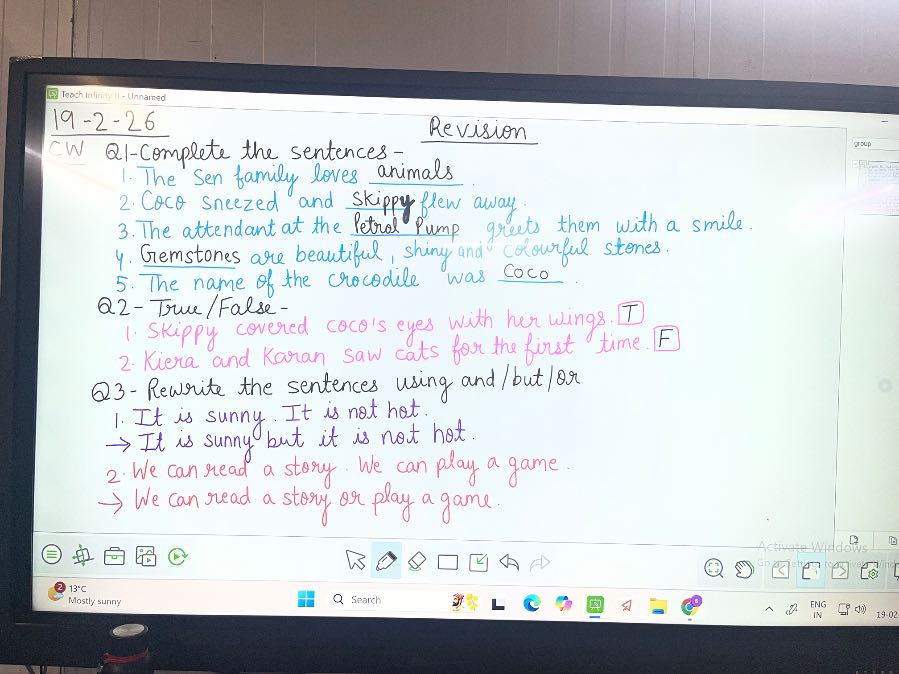 Teach Infinity II - Unnamed
19-2-26
Revision
group
CW Q1-Complete the sentences-
1. The Sen family loves animals
2. Coco sneezed and skippy flew away.
3. The attendant at the Petrol Pump greets them with a smile.
4. Gemstones are beautiful, shiny and colourful stones.
5. The name of the crocodile was Coco.
Q2- True/False-
1. Skippy covered coco's eyes with her wings. T
2. Kiera and Karan saw cats for the first time. F
Q3- Rewrite the sentences using and/but/or
1. It is sunny. It is not hot.
→ It is sunny but it is not hot.
2. We can read a story. We can play a game.
→ We can read a story or play a game.
Activate Windows
2
13°C
Mostly sunny
Search
ENG
IN
19-02